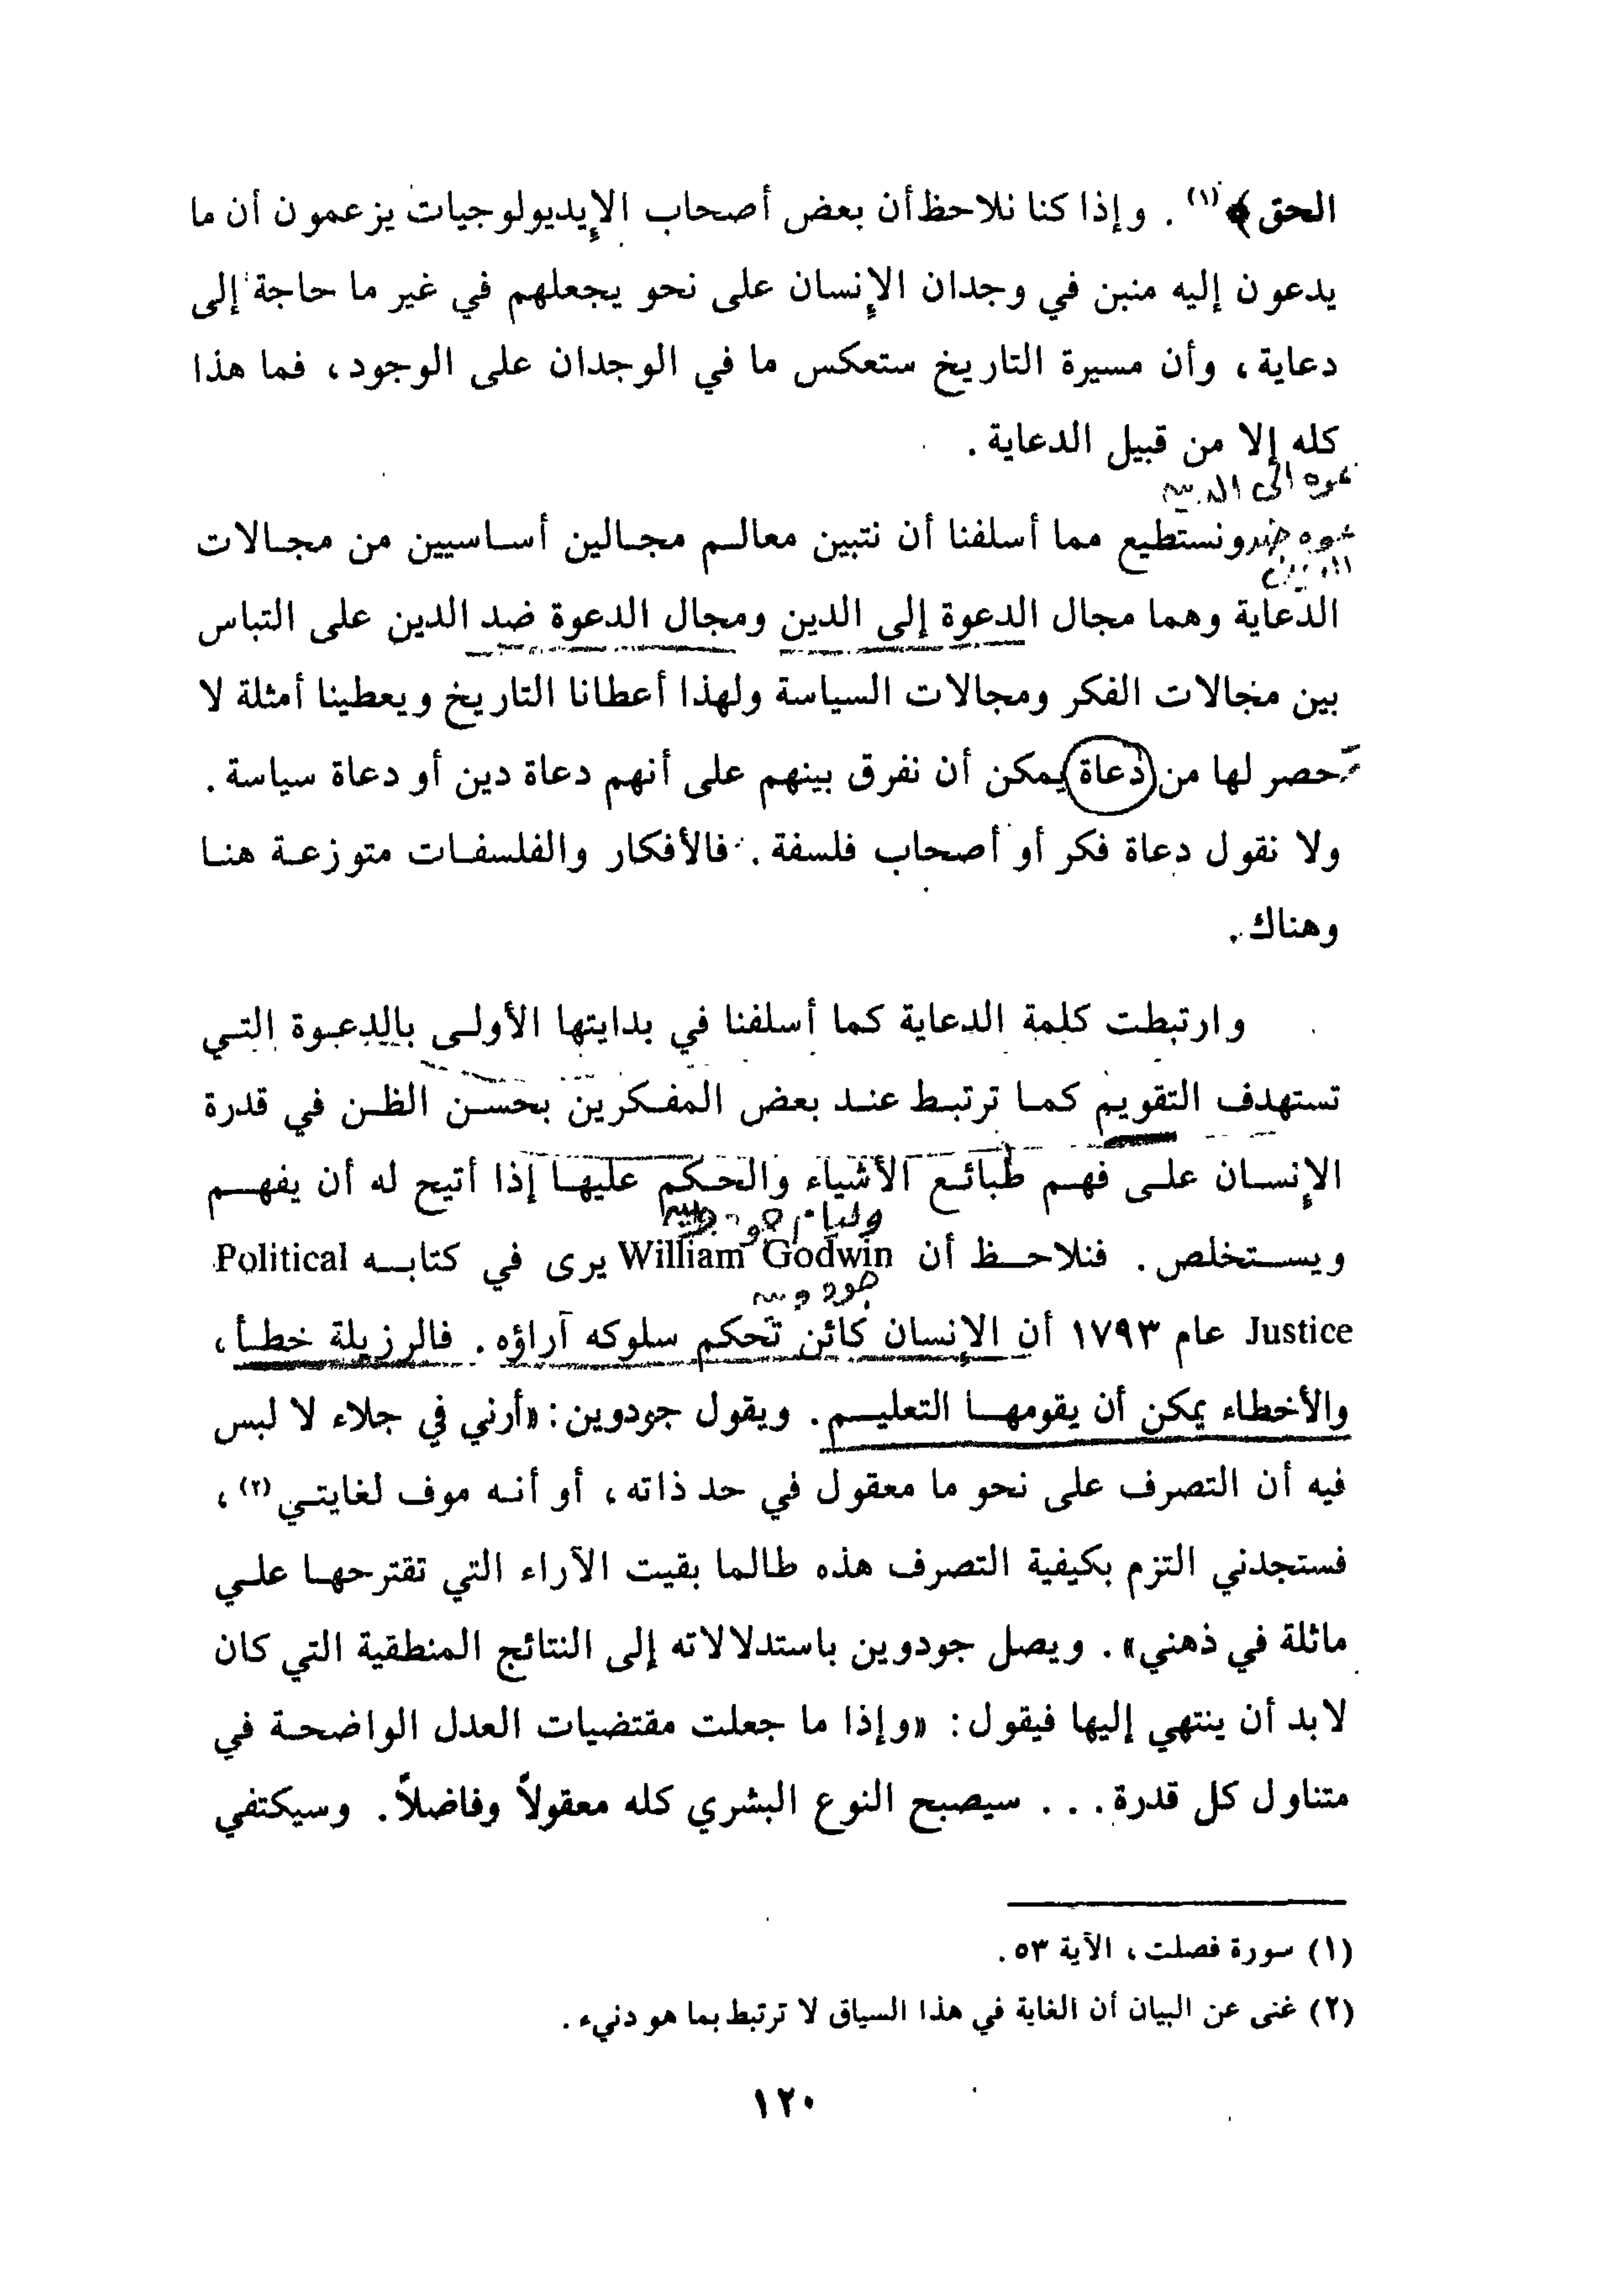 الحق﴾(١). وإذا كنا نلاحظ أن بعض أصحاب الإيديولوجيات يزعمون أن ما
يدعون إليه منبن في وجدان الإنسان على نحو يجعلهم في غير ما حاجة إلى
دعاية، وأن مسيرة التاريخ ستعكس ما في الوجدان على الوجود، فما هذا
كله إلا من قبيل الدعاية.
ونستطيع مما أسلفنا أن نتبين معالم مجالين أساسيين من مجالات
الدعاية وهما مجال الدعوة إلى الدين ومجال الدعوة ضد الدين على التباس
بين مجالات الفكر ومجالات السياسة ولهذا أعطانا التاريخ ويعطينا أمثلة لا
حصر لها من دعاة يمكن أن نفرق بينهم على أنهم دعاة دين أو دعاة سياسة.
ولا نقول دعاة فكر أو أصحاب فلسفة. فالأفكار والفلسفات متوزعة هنا
وهناك.
وارتبطت كلمة الدعاية كما أسلفنا في بدايتها الأولى بالدعوة التي
تستهدف التقويم كما ترتبط عند بعض المفكرين بحسن الظن في قدرة
الإنسان على فهم طبائع الأشياء والحكم عليها إذا أتيح له أن يفهم
وليام
ويستخلص. فنلاحظ أن William Godwin يرى في كتابه Political
Justice عام ١٧٩٣ أن الإنسان كائن تحكم سلوكه آراؤه. فالرزيلة خطأ،
والأخطاء يمكن أن يقومها التعليم. ويقول جودوين: «أرني في جلاء لا لبس
فيه أن التصرف على نحو ما معقول في حد ذاته، أو أنه موف لغايتي(٢)،
فستجدني التزم بكيفية التصرف هذه طالما بقيت الآراء التي تقترحها علي
ماثلة في ذهني». ويصل جودوين باستدلالاته إلى النتائج المنطقية التي كان
لابد أن ينتهي إليها فيقول: «وإذا ما جعلت مقتضيات العدل الواضحة في
متناول كل قدرة... سيصبح النوع البشري كله معقولاً وفاضلاً. وسيكتفي
(١) سورة فصلت، الآية ٥٣.
(٢) غنى عن البيان أن الغاية في هذا السياق لا ترتبط بما هو دنيء.
١٢٠